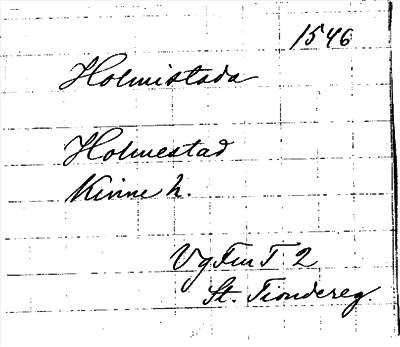 1546
Holmistada
Holmestad
Kinne h.
Vg Fur T. 2
St. Tiondereg.